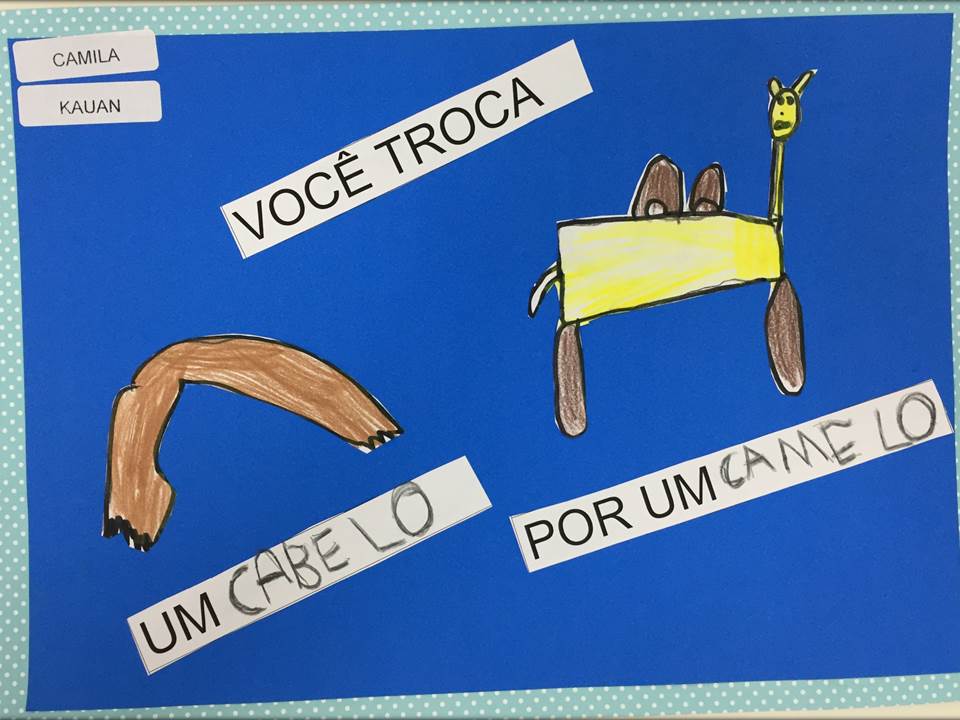 CAMILA
KAUAN
VOCÊ TROCA
UM CABELO
POR UM CAMELO